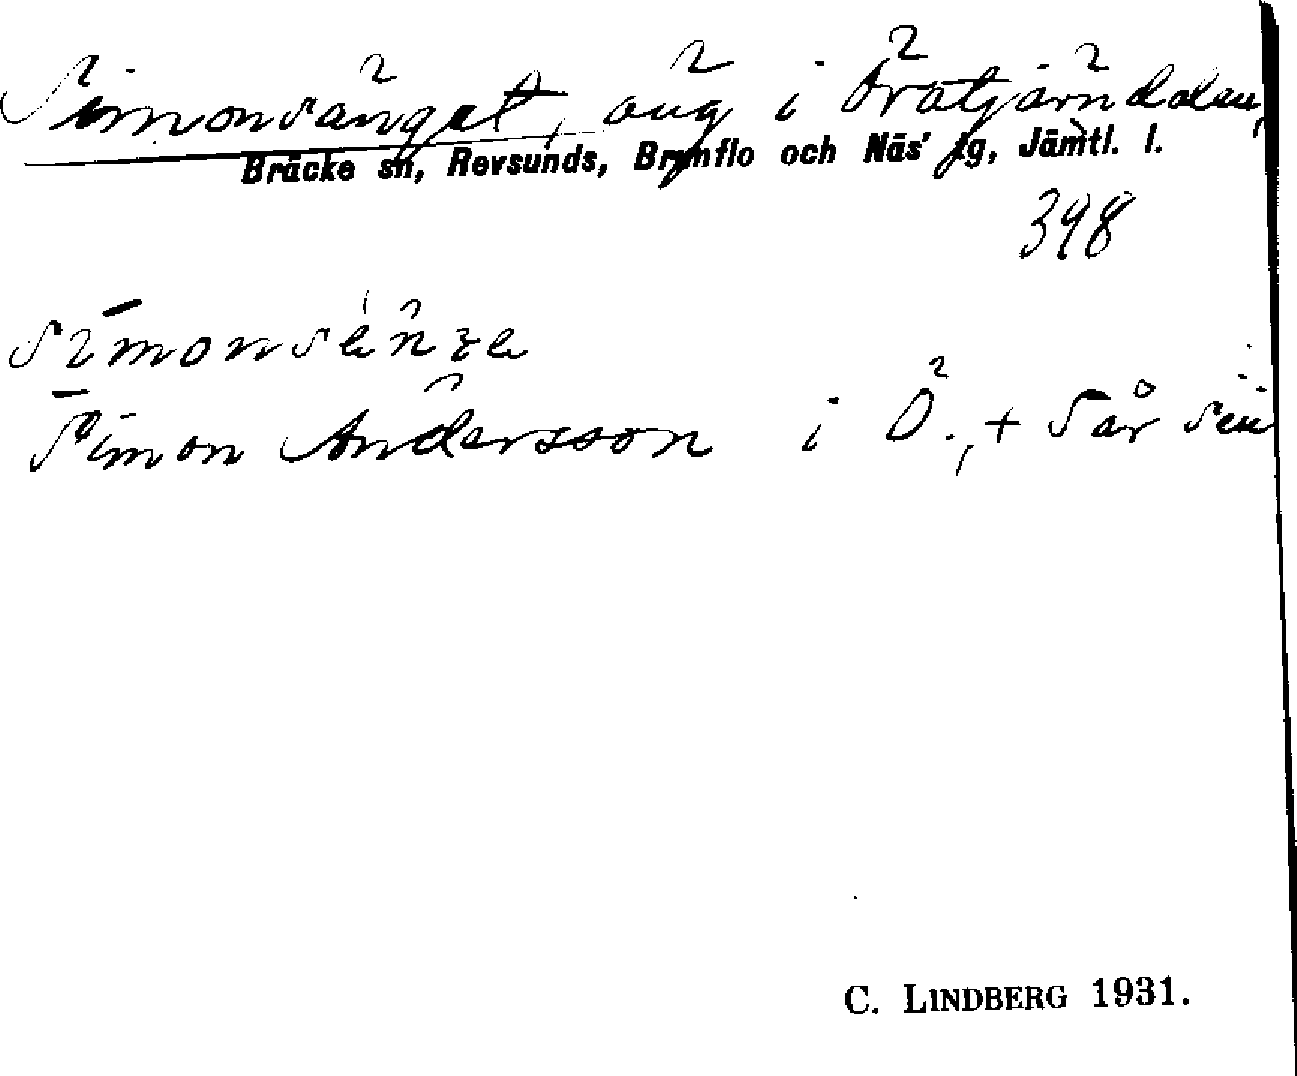 Simonsänget, äng i Övätjärndalen,
Bräcke sn, Revsunds, Brunflo och Näs' tg, Jämtl. l.
398
Simonsänge
Simon Andersson i Ö., + 5 år sen
C. LINDBERG 1931.